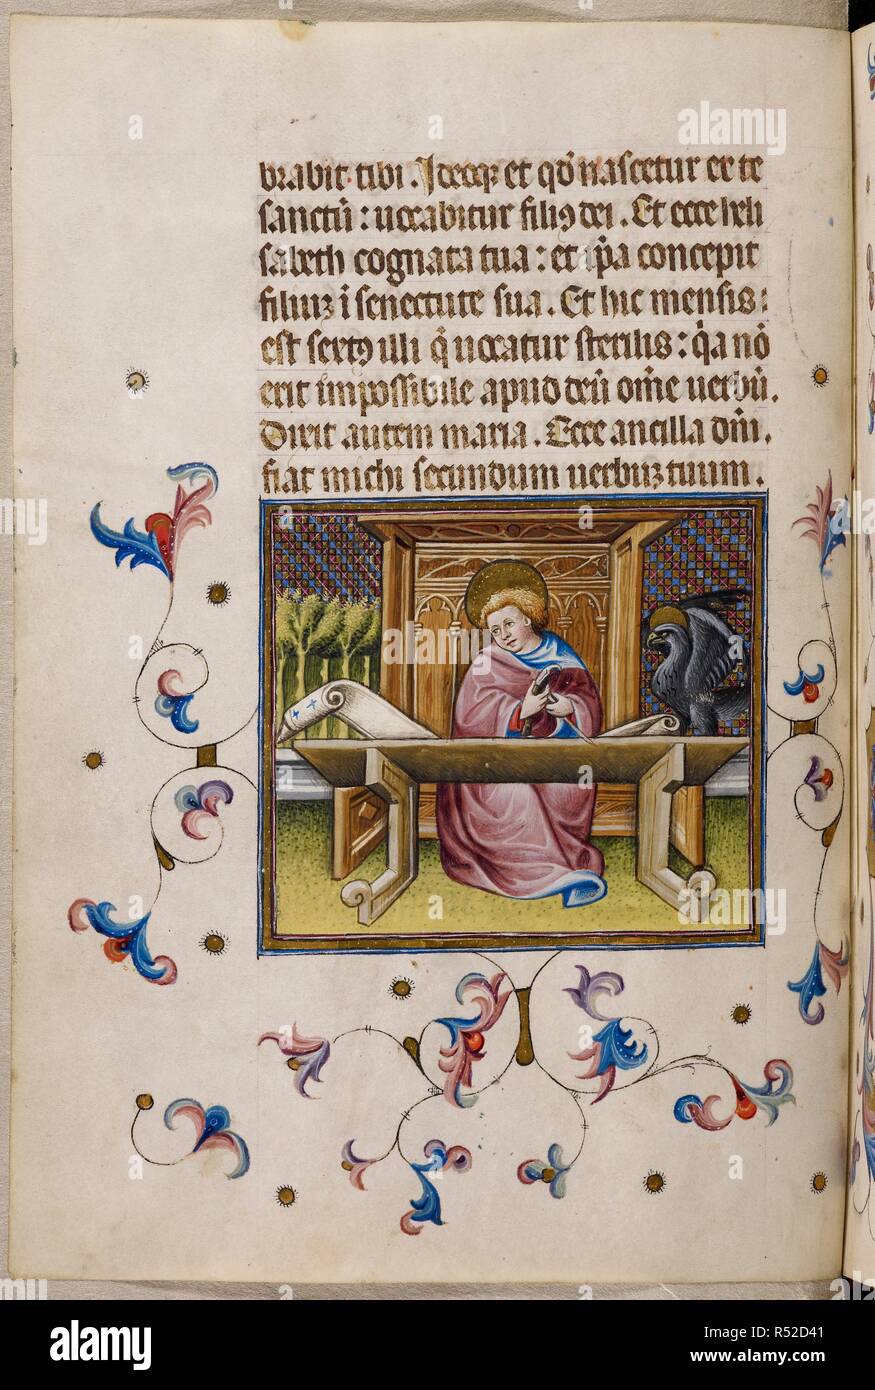 brabit tibi. Ideoq; et qđ nascetur ex te
sanctū : uocabitur filiꝯ dei. Et ecce heli
sabeth cognata tua : et ip̄a concepit
filiuz ī senectute sua. Et hic mensis :
est sextꝯ illi q̄ uocatur sterilis : q̄a nō
erit impossibile apud deū om̄e uerbū.
Dixit autem maria. Ecce ancilla dn̄i.
fiat michi secundum uerbuz tuum.
alamy
alamy
Image ID: R52D41
www.alamy.com